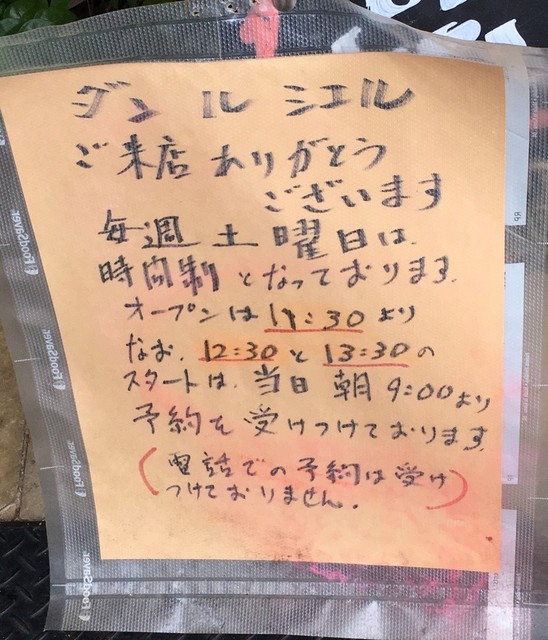 ダン ル シエル
ご来店ありがとう
ございます
毎週土曜日は、
時間制となっております。
オープンは11:30より
なお、12:30と13:30の
スタートは、当日朝9:00より
予約を受けつけております。
(電話での予約は受け
つけておりません。)
FoodSaver
FoodSaver
FoodSaver
FoodSaver
FoodSaver